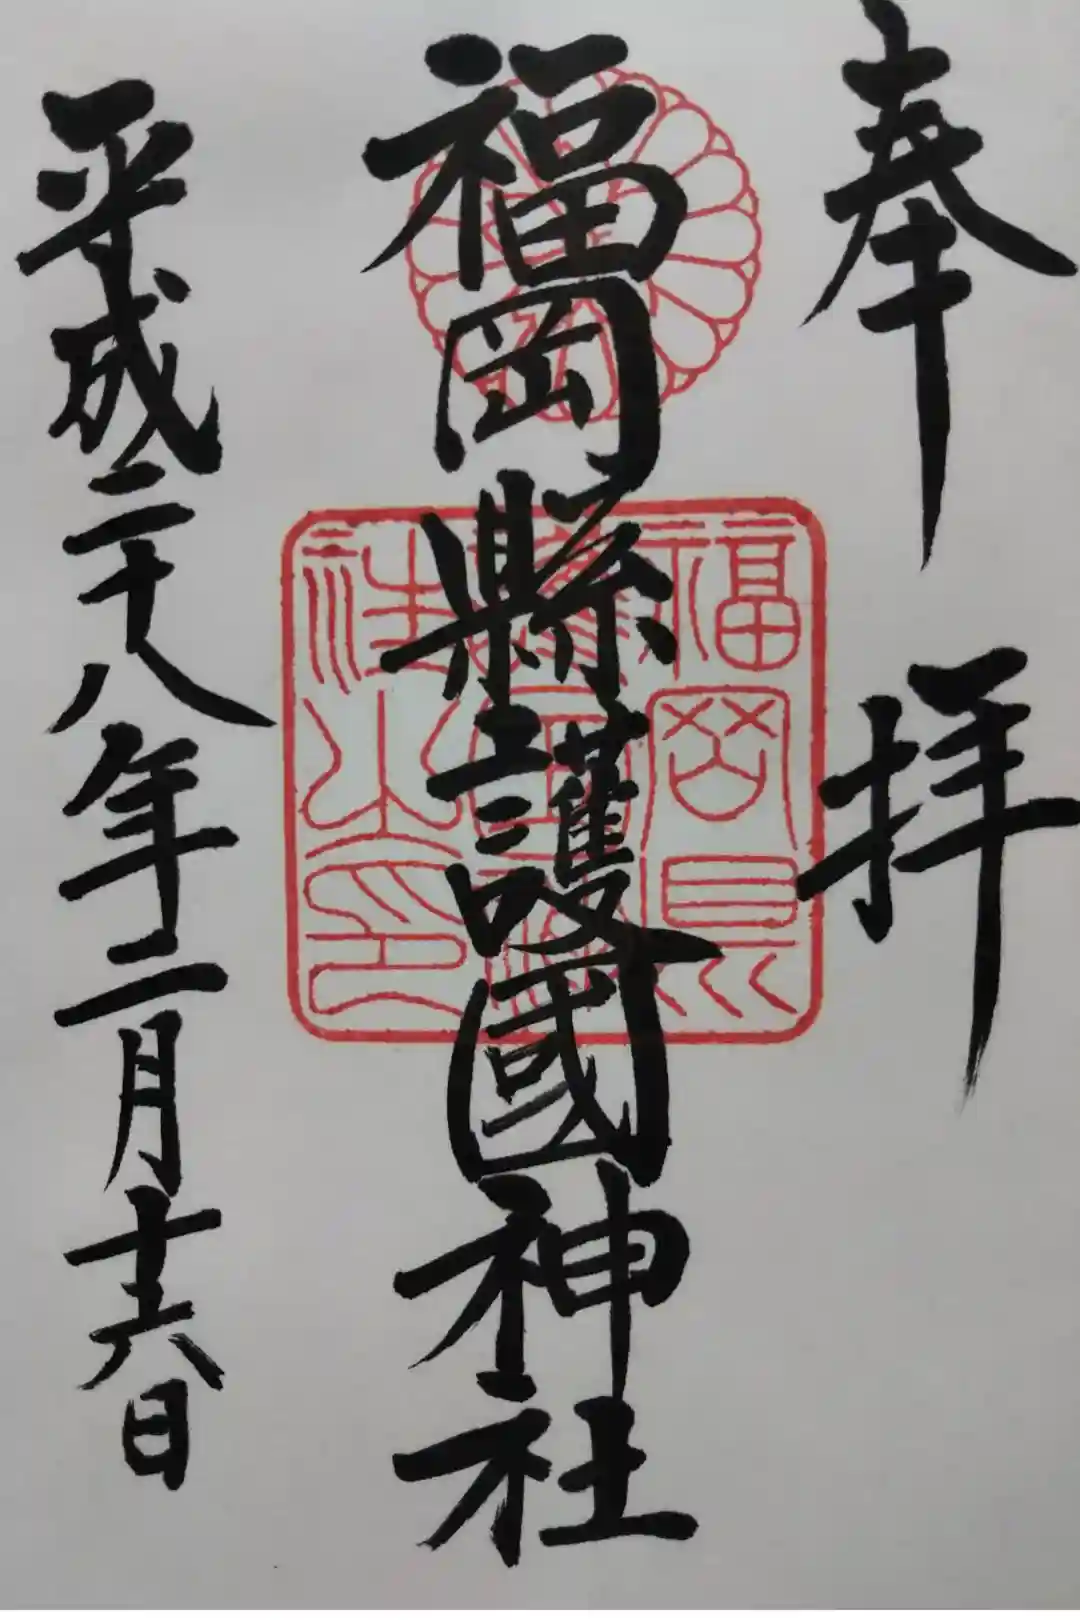 奉拝
福岡縣護國神社
平成二十八年二月十六日
福岡県
護国神
社之印